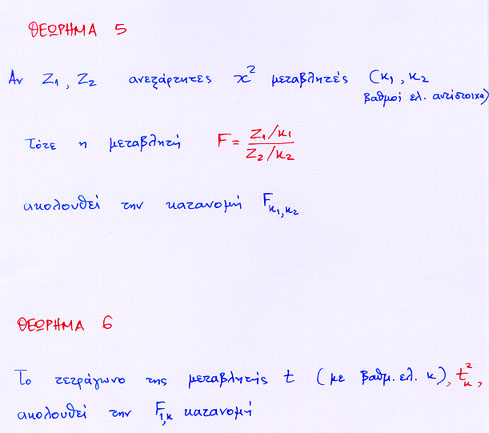 ΘΕΩΡΗΜΑ 5
Αν Z₁, Z₂ ανεξάρτητες x² μεταβλητές (κ₁, κ₂
βαθμοί ελ. αντίστοιχα)
Τότε η μεταβλητή F = (Z₁/κ₁)/(Z₂/κ₂)
ακολουθεί την κατανομή F κ₁,κ₂
ΘΕΩΡΗΜΑ 6
Το τετράγωνο της μεταβλητής t (με βαθμ. ελ. κ), t²κ,
ακολουθεί την F₁,κ κατανομή